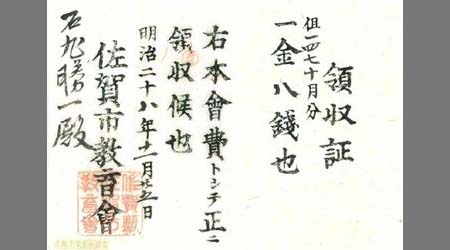 領収証
但一四七十月分
一金八錢也
右本會費トシテ正ニ
領収候也
明治二十八年十一月廿五日
佐賀市教育會
石丸勝一殿